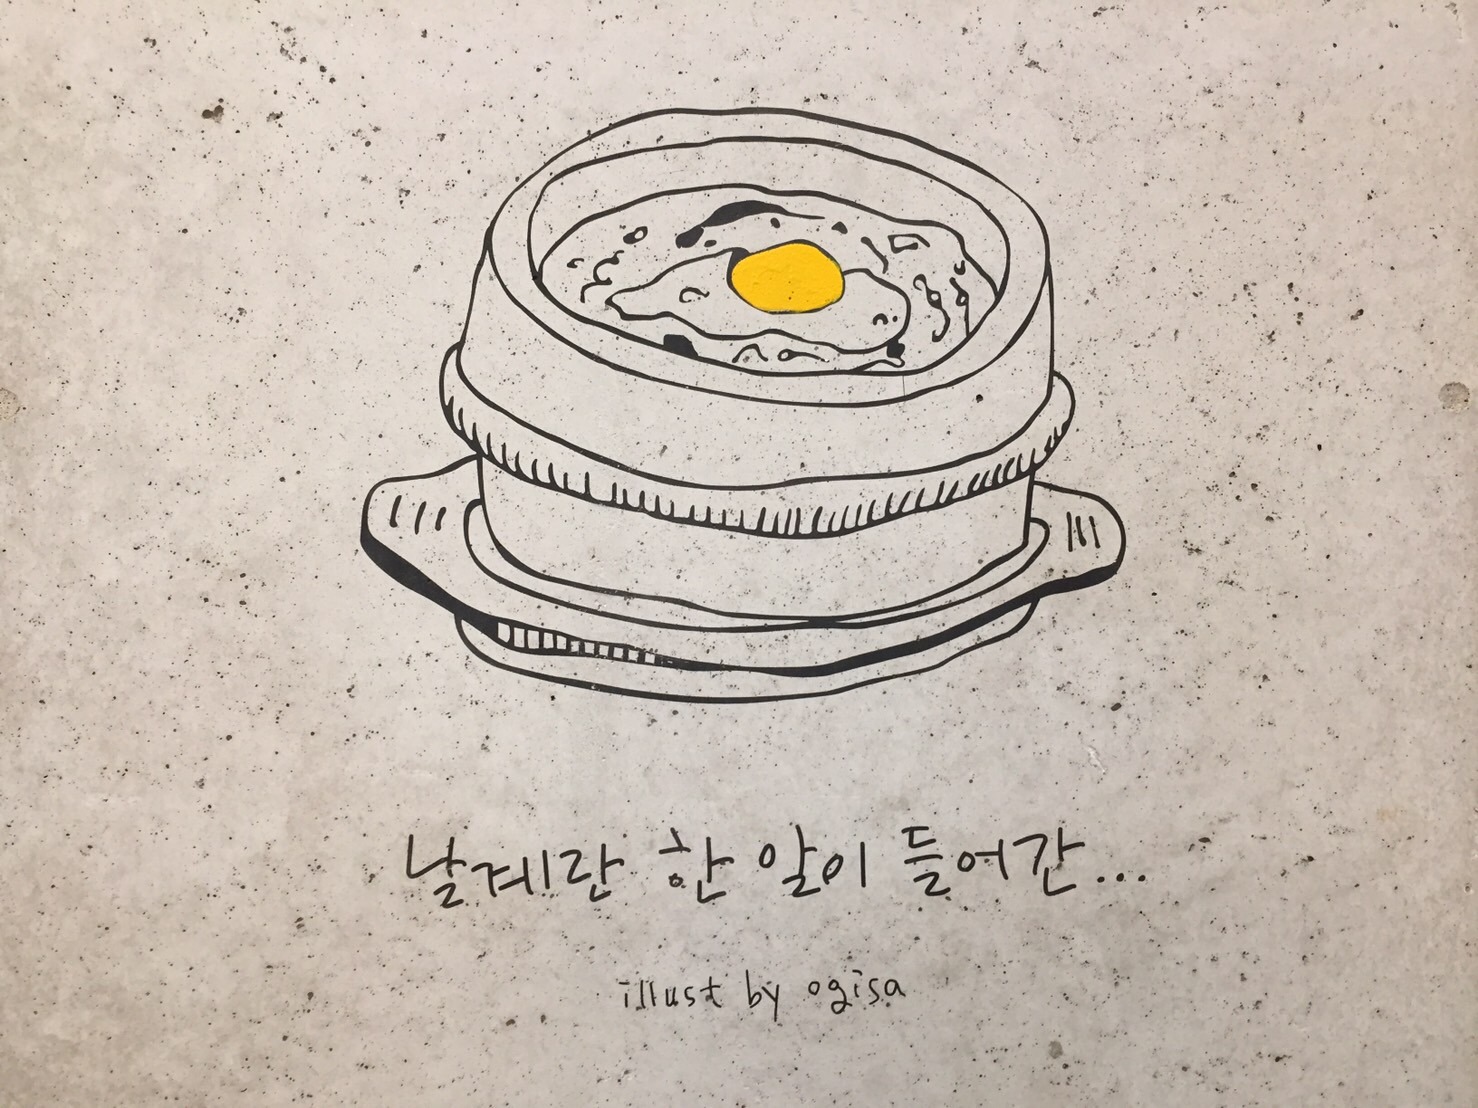 날계란 한 알이 들어간...
illust by ogisa